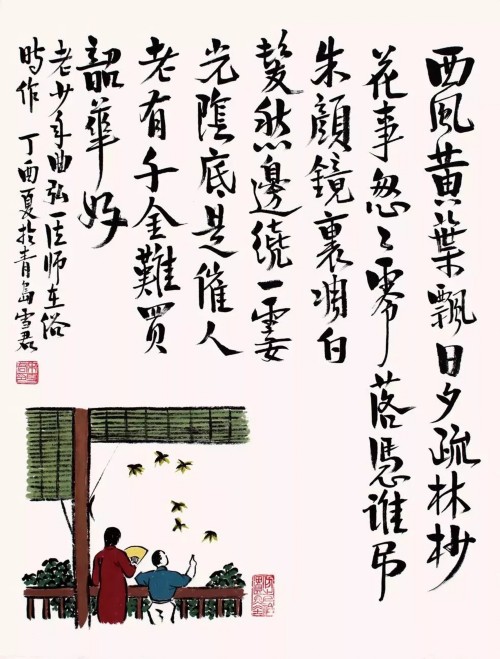 西風黃葉飄日夕疏林杪
花事怱々零落憑誰吊
朱顏鏡裏凋白
髮愁邊繞一霎
光陰底是催人
老有千金難買
韶華好
老少年曲弘一法師在俗
時作 丁酉夏於青島雪君